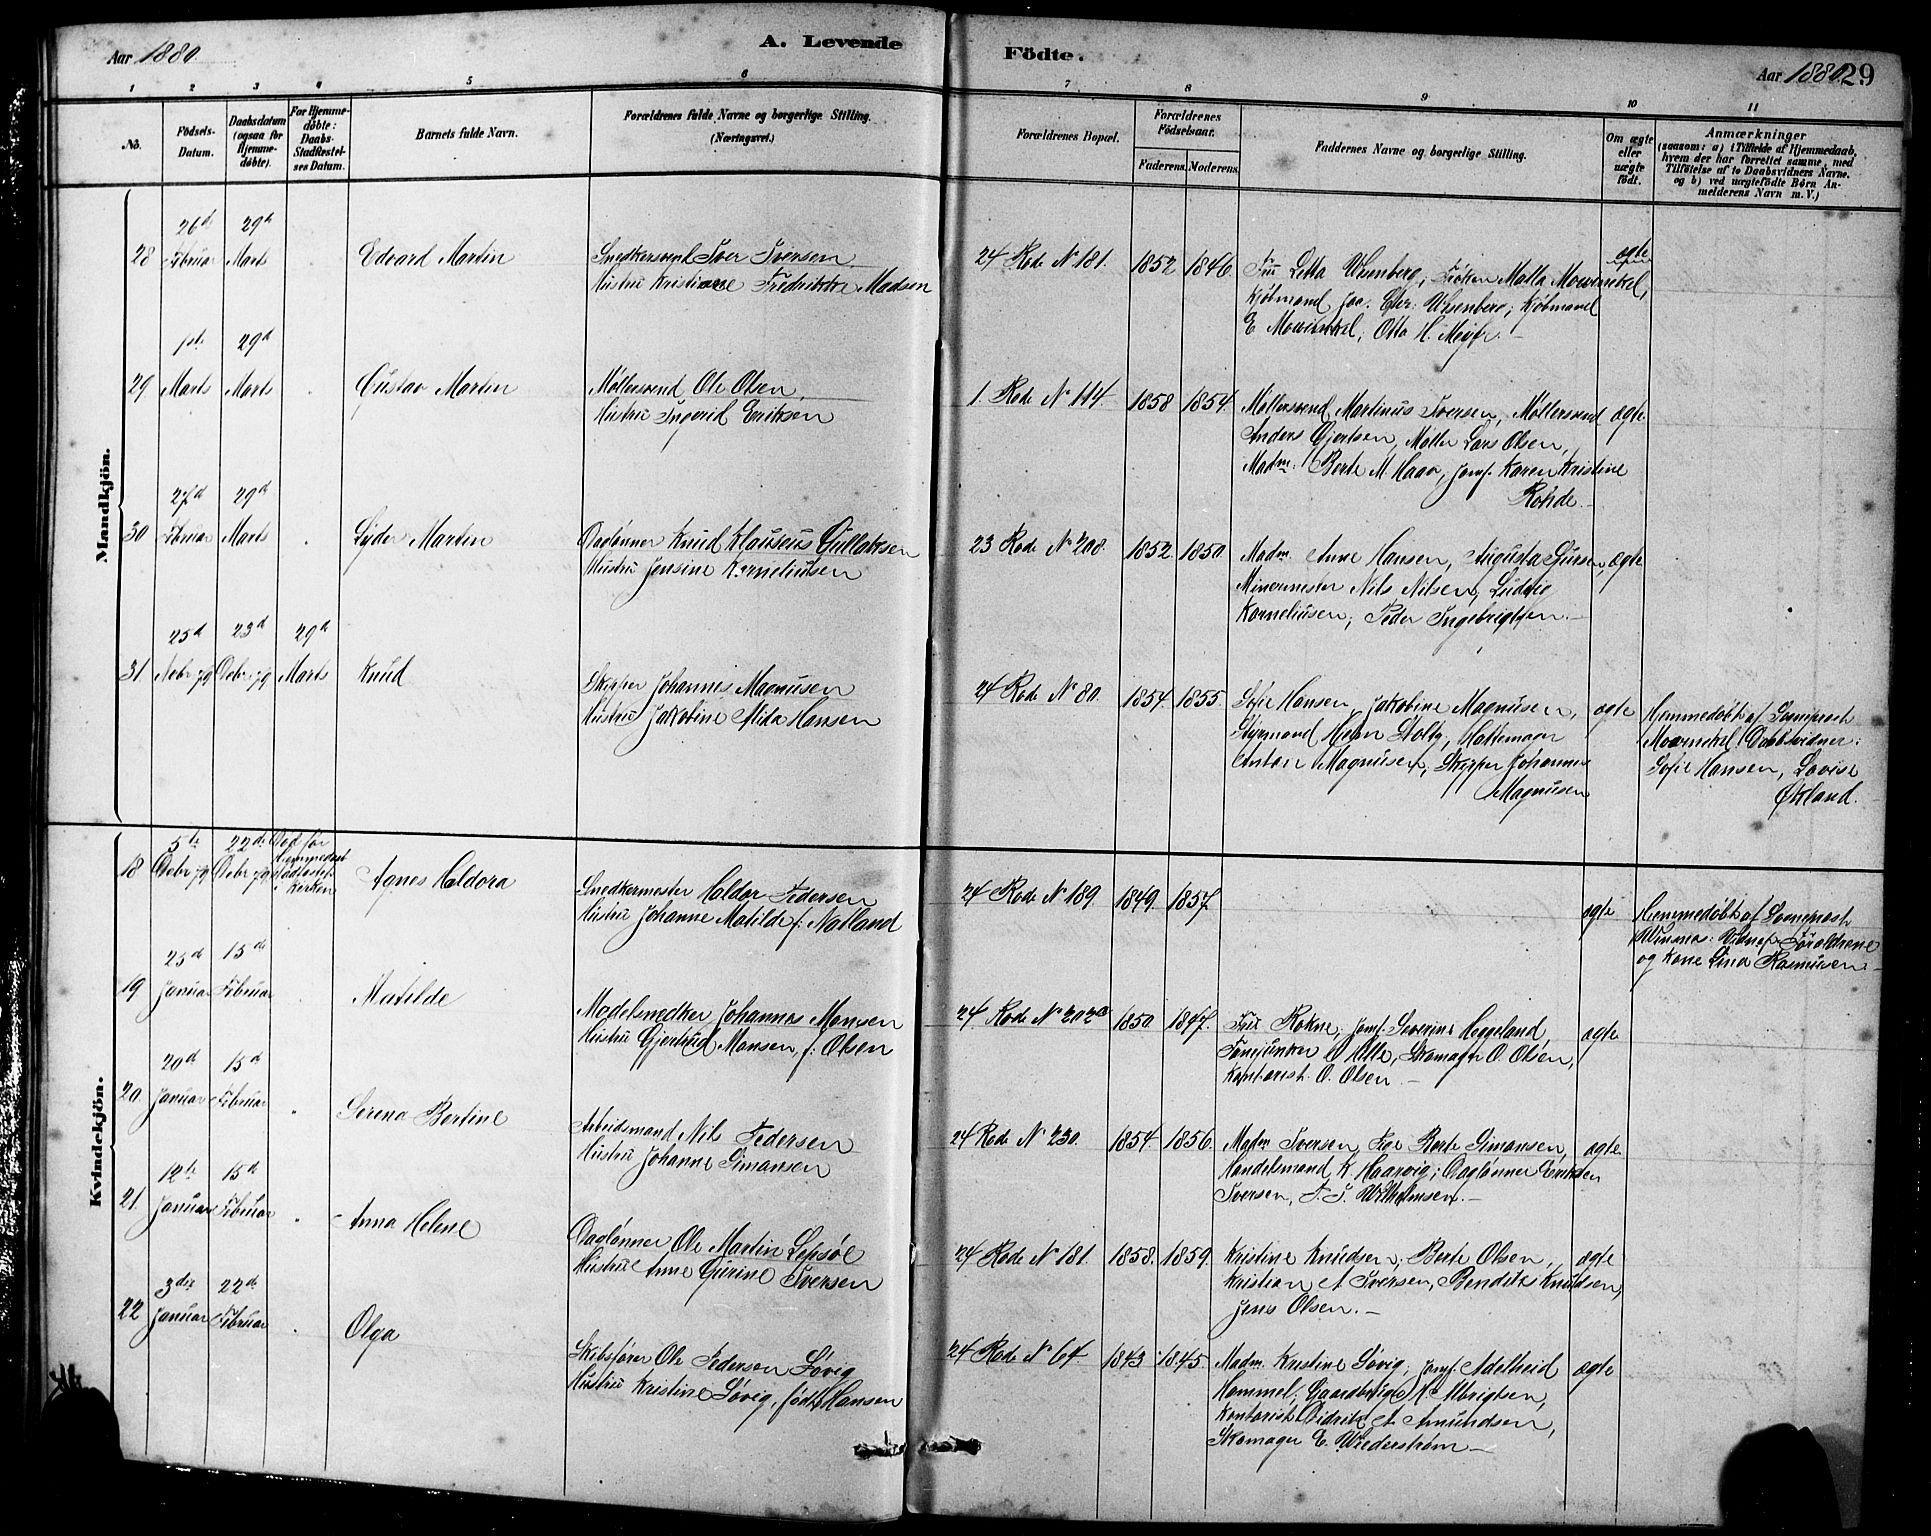 Aar 1880.
A. Levende
Födte.
Aar 1880. 29
1 2 3 4 5 6 7 8 9 10 11
No.
Födsels-
Datum.
Daabsdatum
(ogsaa for
Hjemme-
döbte).
For Hjemme-
döbte:
Daabs-
Stadfæstel-
ses Datum.
Barnets fulde Navn.
Forældrenes fulde Navne og borgerlige Stilling.
(Næringsvei.)
Forældrenes Bopæl.
Forældrenes
Födselsaar.
Faderens. Moderens.
Faddernes Navne og borgerlige Stilling.
Om ægte
eller
uægte
födt.
Anmærkninger
(saasom: a) i Tilfælde af Hjemmedaab,
hvem der har forrettet samme, med
Tilföielse af to Daabsvidners Navne.
og b) ved uægtefödte Börn An-
melderens Navn m.V.)
Mandkjön.
26d 29d
28 Februar Marts Edvard Martin
Snedkersvend Iver Iversen
Hustru Kristiane Fredrikke Madsen
24 Rode No 181. 1852 1846.
Fru Letta Wesenberg, Frøken Malla Mowinckel,
Kjøbmand Jac. Chr. Wesenberg, Kjøbmand
E. Mowinckel, Otto H. Meyer.
ægte
1ste 29d
29 Marts Marts Gustav Martin
Møllersvend Ole Olsen,
Hustru Ingerid Eriksen
1. Rode No 114. 1858 1854.
Møllersvend Martinus Iversen, Møllersvend
Anders Gjertsen, Møller Lars Olsen,
Madm. Berte M. Haao, Jomf. Karen Kristine
Rohde.
ægte
27d 29d
30 Februar Marts Lyder Martin
Daglønner Knud Klauseus Gullaksen
Hustru Jensine Korneliusen
23 Rode No 208. 1852. 1850.
Madm. Anne Hansen, Augusta
Minermester Nils Nilsen, Ludvig
Korneliusen, Peder Ingebrigtsen.
ægte
25d 23d 29d
31 Nobr 79 Debr 79 Marts Knud
Skipper Johannes Magnusen
Hustru Jakobine Mida Hansen
24 Rode No 80. 1854. 1855.
Sofie Hansen, Jakobine Magnusen,
Styrmand Stoltz, Hattemager
Anton Magnusen, Skipper Johannes
Magnusen
ægte
Hjemmedøbt af Sogneprest
Mowinckel. Daabsvidner:
Sofie Hansen, Lovise
Økland.
Kvindekjön.
5te 22de Død før
Hjemmedaab
i Kirken
18 Debr 79 Debr 79 Agnes Haldora
Snedkermester Haldor Pedersen
Hustru Johanne Matilde f. Nalland
24 Rode No 189. 1849. 1857.
ægte
Hjemmedøbt af Sogneprest
Forældrene
og Kone Lina Rasmusen
23d 15de
19 Januar Februar Matilde
Modelsnedker Johannes Monsen
Hustru Gjertrud Monsen, f. Olsen
24 Rode No 202a 1850. 1847.
Fru Rokne, Jomf. Severine Heggeland
Helle, Skomager O. Olsen,
Kontorist O. Olsen
ægte
20d 15d
20. Januar Februar Serena Bertine
Arbeidsmand Nils Pedersen
Hustru Johanne Simonsen
24 Rode No 230. 1854. 1856.
Madm. Iversen, Berte Simonsen,
Handelsmand K. Haarvig; Daglønner Eriksen
Iversen, Wilhelmsen.
ægte
12te 15d
21. Januar Februar Anna Helene
Daglønner Ole Martin Leksøe
Hustru Anne Gurine Iversen
24 Rode No 181. 1858. 1859.
Kristine Knudsen, Berte Olsen,
Kristian A Iversen, Bendiks Knudsen,
Jens Olsen.
ægte
3die 22d
22 Januar Februar Olga
Skibsfører Ole Pedersen Løvig
Hustru Kristine Løvig, født Hansen
24 Rode No 64. 1843. 1845.
Madm. Kristine Løvig, Jomf. Adelheid
Hammel, Gaardbruger Albrigtsen,
Kontorist Didrik A Amundsen,
Skomager E. Wiederstrøm
ægte